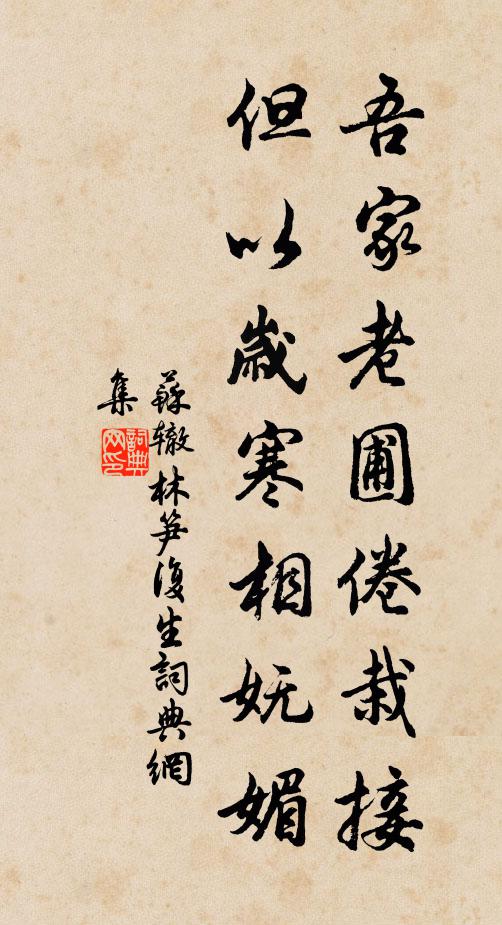 吾家老圃倦栽接
但以歲寒相妩媚
蘇辙林笋復生詞典網
集
詞典
网印